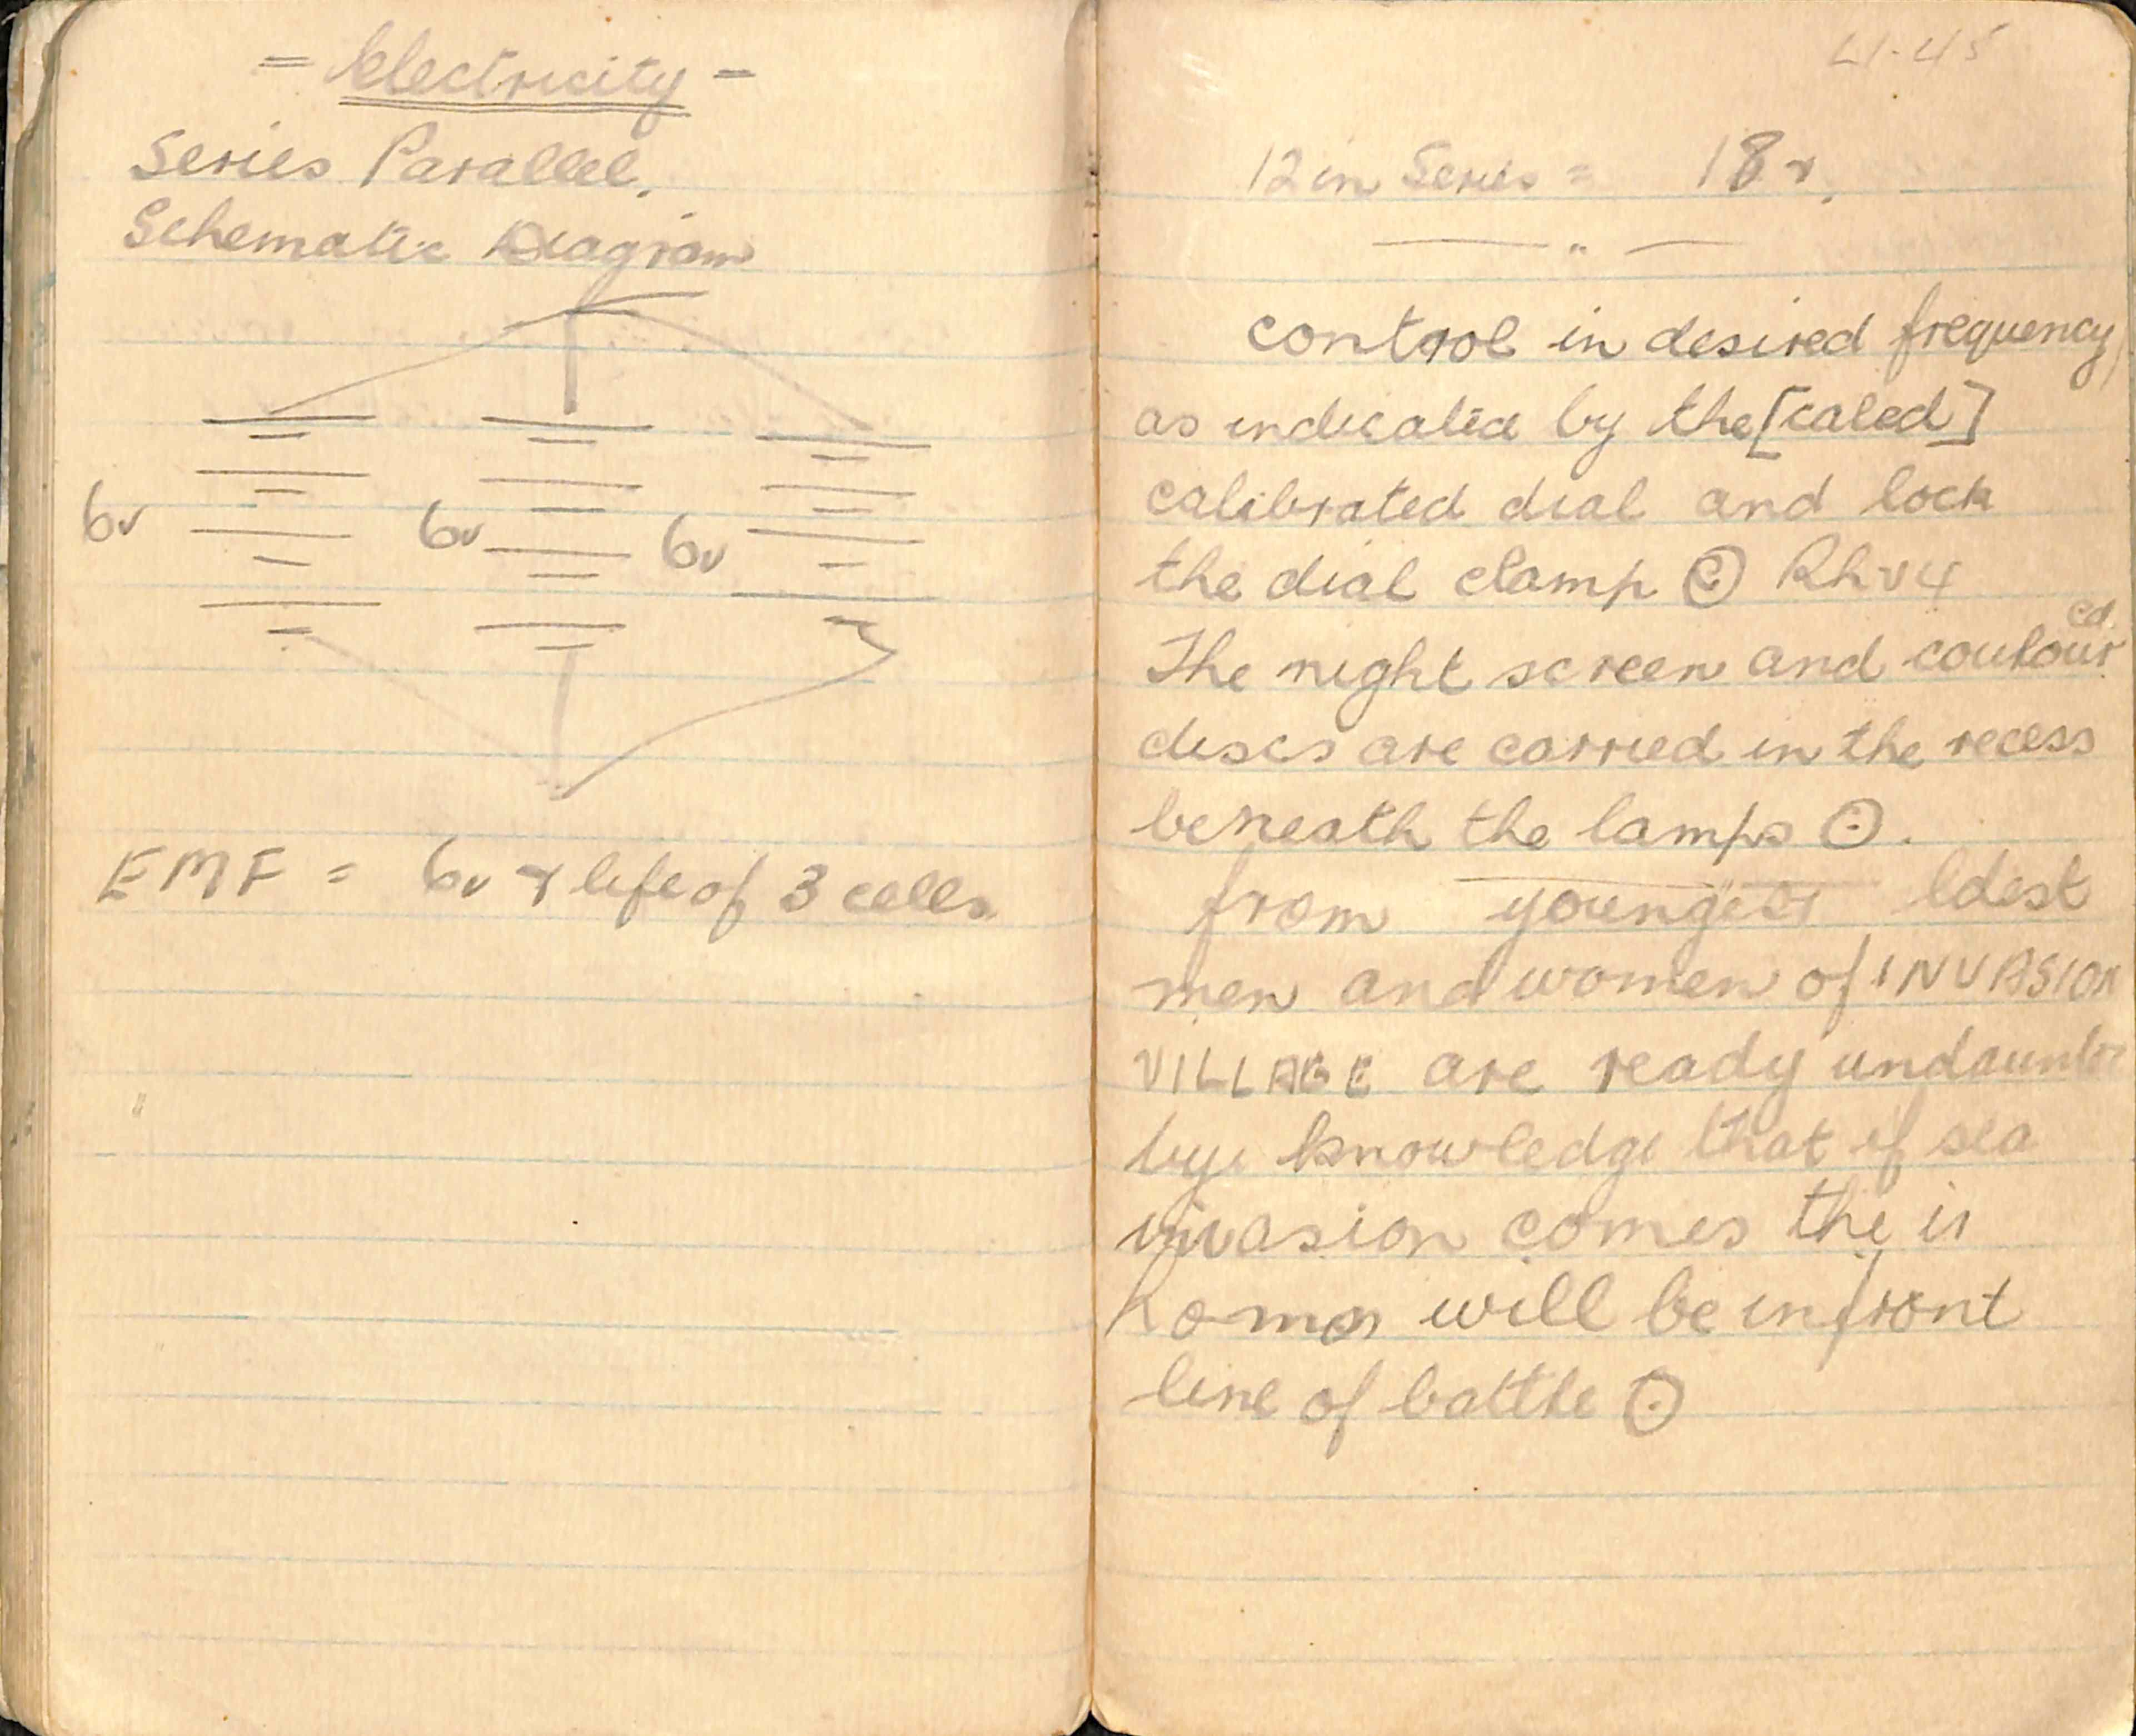 = Electricity =
Series Parallel.
Schematic Diagram
6v 6v 6v
EMF = 6v + life of 3 cells
4.45
12 in Series = 18v.
— " —
control in desired frequency
as indicated by the [caled]
calibrated dial and lock
the dial clamp ⊙
The night screen and coulour ed
discs are carried in the recess
beneath the lamps ⊙.
from youngest ldest
men and women of INVASION
VILLAGE are ready
by knowledge that if sea
invasion comes the ir
homes will be in front
line of battle ⊙